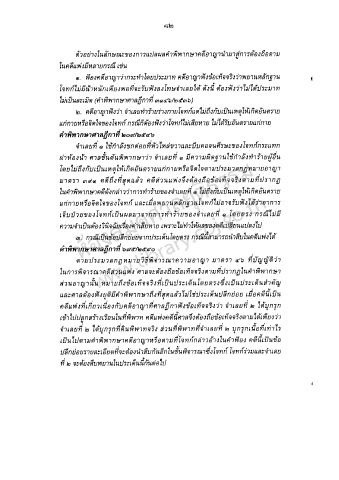 ๘๒
ตัวอย่างในลักษณะของการแปลผลคำพิพากษาคดีอาญานำมาสู่การต้องถือตาม
ในคดีแพ่งมีหลายกรณี เช่น
๑. ฟ้องคดีอาญาว่ากระทำโดยประมาท คดีอาญาฟังข้อเท็จจริงว่าพยานหลักฐาน
โจทก์ไม่มีน้ำหนักเพียงพอที่จะรับฟังลงโทษจำเลยได้ ดังนี้ ต้องฟังว่าไม่ได้ประมาท
ไม่เป็นละเมิด (คำพิพากษาศาลฎีกาที่
๒. คดีอาญาฟังว่า จำเลยทำร้ายร่างกายโจทก์แต่ไม่ถึงกับเป็นเหตุให้เกิดอันตราย
แก่กายหรือจิตใจของโจทก์ กรณีก็ต้องฟังว่าโจทก์ไม่เสียหาย ไม่ได้รับอันตรายแก่กาย
คำพิพากษาศาลฎีกาที่
จำเลยที่ ๑ ใช้กำลังชกต่อยที่หัวไหล่ขวาและบีบคอจนศีรษะของโจทก์กระแทก
ฝาห้องน้ำ ศาลชั้นต้นพิพากษาว่า จำเลยที่ ๑ มีความผิดฐานใช้กำลังทำร้ายผู้อื่น
โดยไม่ถึงกับเป็นเหตุให้เกิดอันตรายแก่กายหรือจิตใจตามประมวลกฎหมายอาญา
มาตรา ๓๙๑ คดีถึงที่สุดแล้ว คดีส่วนแพ่งจึงต้องถือข้อเท็จจริงตามที่ปรากฏ
ในคำพิพากษาคดีดังกล่าวว่าการทำร้ายของจำเลยที่ ๑ ไม่ถึงกับเป็นเหตุให้เกิดอันตราย
แก่กายหรือจิตใจของโจทก์ และเมื่อพยานหลักฐานโจทก์ไม่อาจรับฟังได้ว่าอาการ
เจ็บป่วยของโจทก์เป็นผลมาจากการทำร้ายของจำเลยที่ ๑ โดยตรง กรณีไม่มี
ความจำเป็นต้องวินิจฉัยเรื่องค่าเสียหาย เพราะไม่ทำให้ผลของคดีเปลี่ยนแปลงไป
๓. กรณีเป็นข้อปลีกย่อยจากประเด็นโดยตรง กรณีนี้สามารถนำสืบในคดีแพ่งได้
คำพิพากษาศาลฎีกาที่
ตามประมวลกฎหมายวิธีพิจารณาความอาญา มาตรา ๔๖ ที่บัญญัติว่า
ในการพิจารณาคดีส่วนแพ่ง ศาลจะต้องถือข้อเท็จจริงตามที่ปรากฏในคำพิพากษา
ส่วนอาญานั้น หมายถึงข้อเท็จจริงที่เป็นประเด็นโดยตรงซึ่งเป็นประเด็นสำคัญ
และศาลต้องฟังยุติมีคำพิพากษาถึงที่สุดแล้วไม่ใช่ประเด็นปลีกย่อย เมื่อคดีนี้เป็น
คดีแพ่งที่เกี่ยวเนื่องกับคดีอาญาที่ศาลฎีกาฟังข้อเท็จจริงว่า จำเลยที่ ๒ ได้บุกรุก
เข้าไปปลูกสร้างเรือนในที่พิพาท คดีแพ่งคดีนี้ศาลจึงต้องถือข้อเท็จจริงตามได้เพียงว่า
จำเลยที่ ๒ ได้บุกรุกที่ดินพิพาทจริง ส่วนที่พิพาทที่จำเลยที่ ๒ บุกรุกเนื้อที่เท่าไร
เป็นไปตามคำพิพากษาคดีอาญาหรือตามที่โจทก์กล่าวอ้างในคำฟ้อง คดีนี้เป็นข้อ
ปลีกย่อยรายละเอียดที่จะต้องนำสืบกันอีกในชั้นพิจารณาซึ่งโจทก์ โจทก์ร่วมและจำเลย
ที่ ๒ จะต้องสืบพยานในประเด็นนี้กันต่อไป